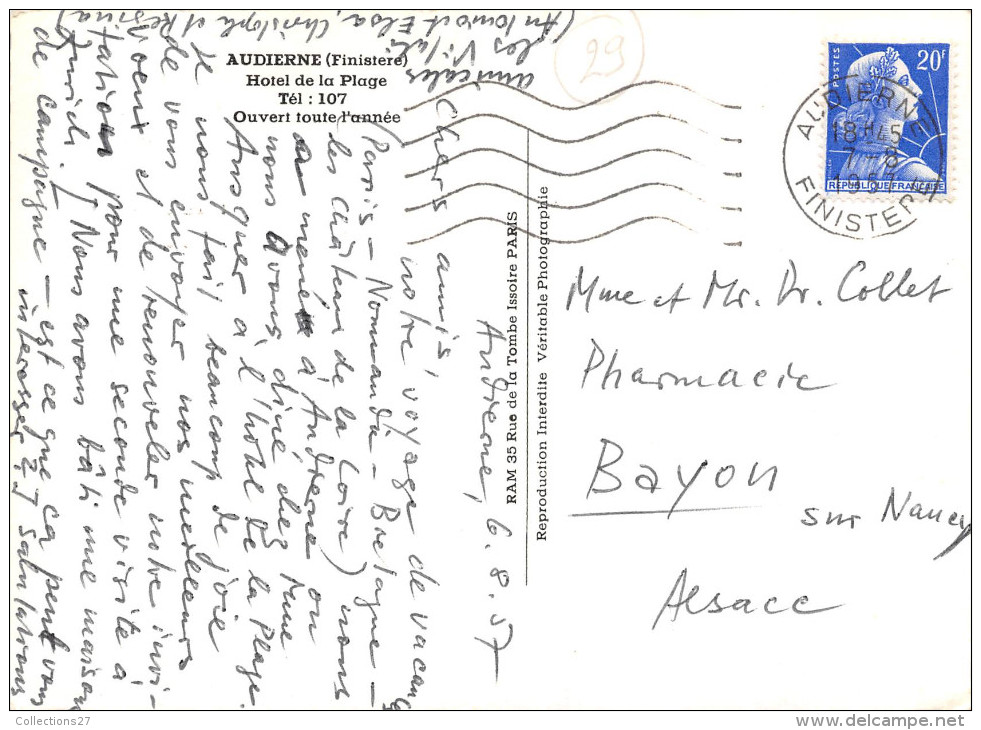 AUDIERNE (Finistère)
Hotel de la Plage
Tél : 107
Ouvert toute l'année
Audierne, 6. 8. 57
Chers amis,
notre voyage de vacances
(Paris – Normandie – Bretagne –
les châteaux de la Loire) nous
a mené à Audierne où
nous avons diné chez Mme
Ansquer à l'hôtel de la Plage.
Il nous fait beaucoup de joie
de vous envoyer nos meilleurs
voeux et de renouveler notre invi-
tation pour une seconde visite à
Zurich! Nous avons bâti une maison
de campagne – est ce que ça peut vous
interesser?! Salutations
amicales
les
(Antonio et Elsa, Christoph et Regina)
29
RAM 35 Rue de la Tombe Issoire PARIS
Reproduction Interdite Véritable Photographie
POSTES
20F
REPUBLIQUE FRANÇAISE
AUDIERNE
18H45
7-8
1957
FINISTERE
Mme et Mr. Dr. Collet
Pharmacie
Bayon
sur Nancy
Alsace
Collections27
delcampe.net